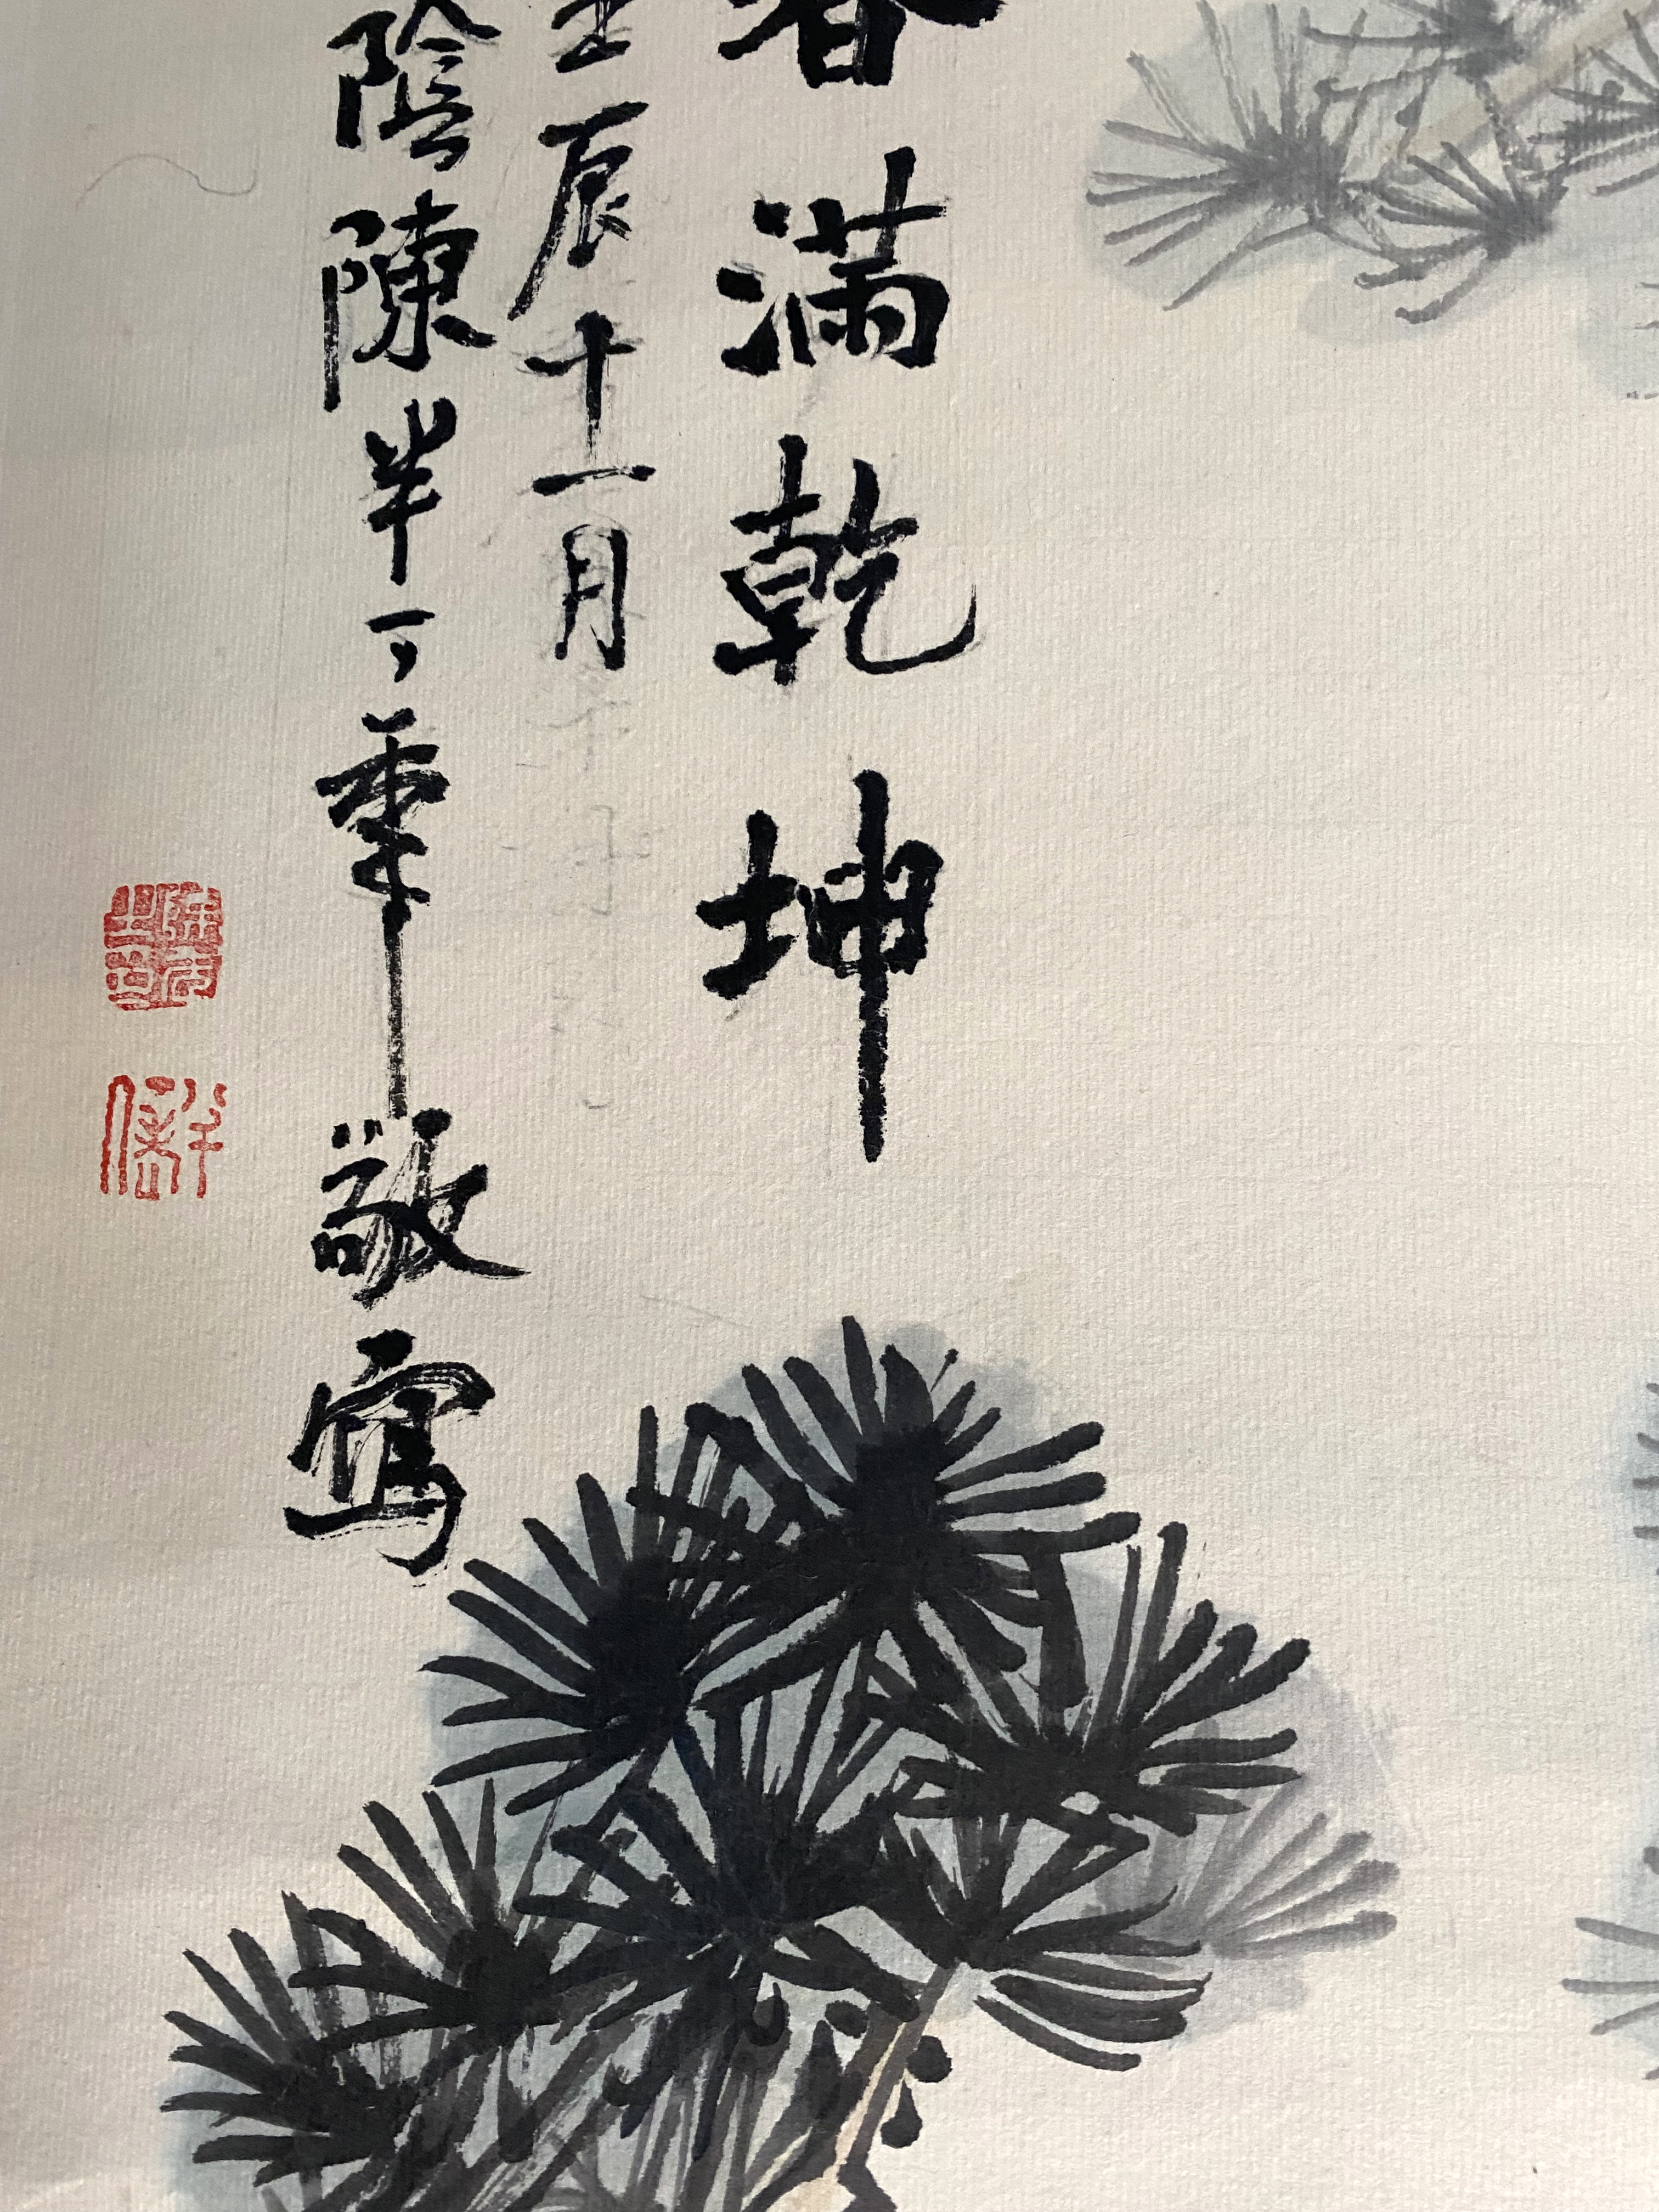 春滿乾坤
壬辰十一月
陰陳半丁年敬寫